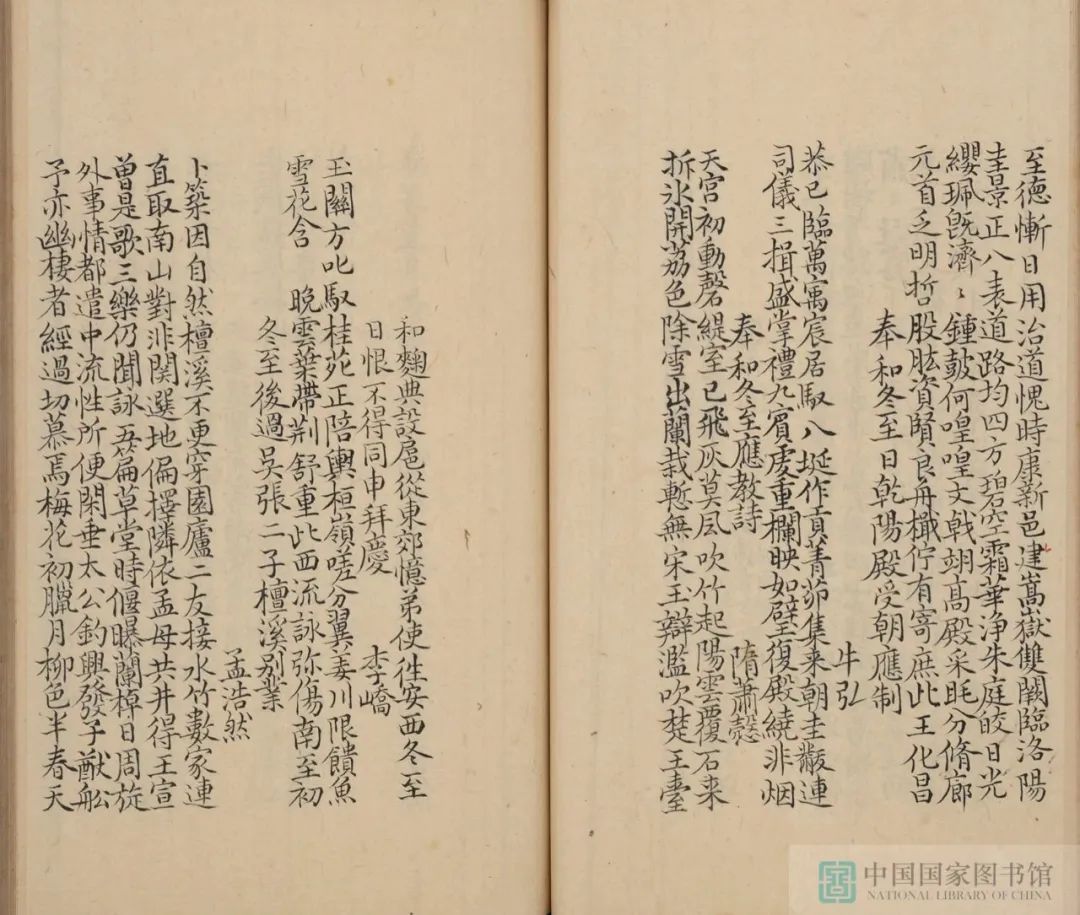 至德慚日用治道愧時康新邑建嵩嶽雙闕臨洛陽
圭景正八表道路均四方碧空霜華淨朱庭皎日光
纓珮既濟〻鍾鼓何喤喤文戟翊高殿采眊分脩廊
元首乏明哲股肱資賢良舟檝佇有寄庶此王化昌
奉和冬至日乾陽殿受朝應制
牛弘
恭已臨萬㝢宸居馭八埏作貢菁茆集来朝圭黻連
司儀三揖盛掌禮九賓虔重欄映如璧復殿繞非烟
奉和冬至應教詩
隋蕭愨
天宫初動磬緹室已飛灰莫風吹竹起陽雲覆石来
拆氷開荔色除雪出蘭栽慙無宋玉辯濫吹楚王臺
和麴典設扈從東郊憶弟使徃安西冬至
日恨不得同申拜慶
李嶠
玉關方叱馭桂苑正陪輿桓嶺嗟分翼姜川限饋魚
雪花含 晚雲葉帶荆舒重此西流詠弥傷南至初
冬至後過吳張二子檀溪别業
孟浩然
卜築因自然檀溪不更穿園廬二友接水竹數家連
直取南山對非関選地偏擇隣依孟母共井得王宣
曽是歌三樂仍聞詠五篇草堂時偃曝蘭棹日周旋
外事情都遣中流性所便閑垂太公釣興發子猷舩
予亦幽棲者經過切慕焉梅花初臘月柳色半春天
中国国家图书馆
NATIONAL LIBRARY OF CHINA